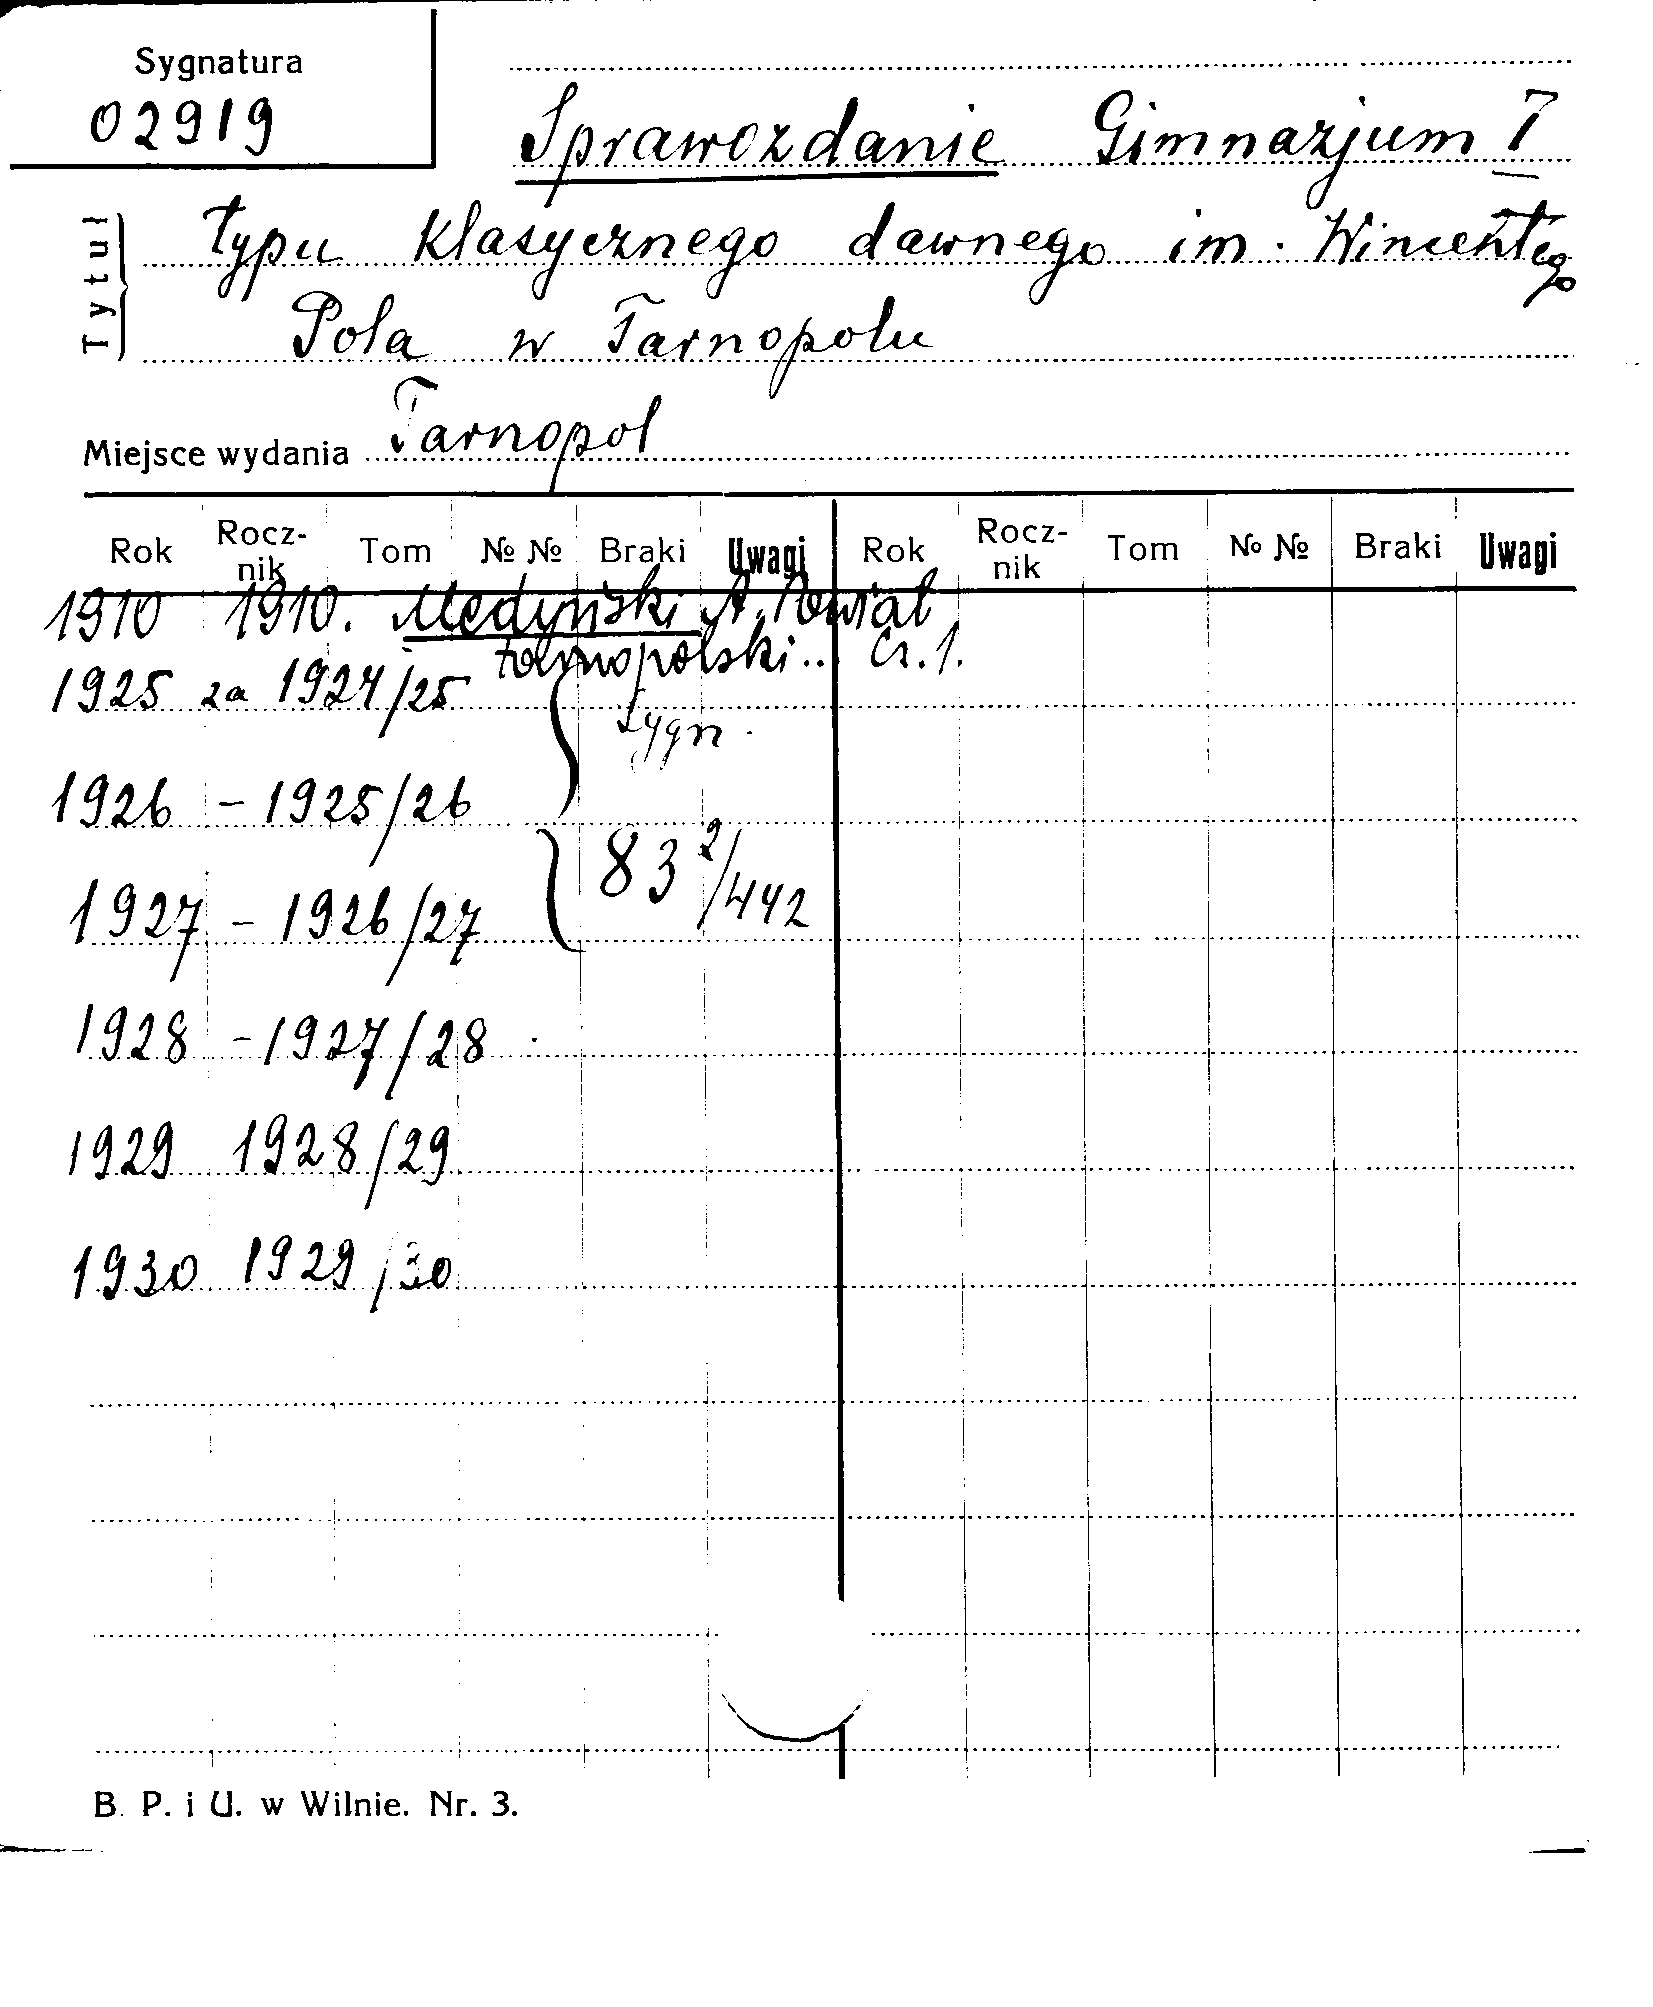 Sygnatura
02919
Sprawozdanie Gimnazjum I
Tytuł
typu klasycznego dawnego im. Wincentego
Pola w Tarnopolu
Miejsce wydania Tarnopol
Rok Rocz-nik Tom № № Braki Uwagi Rok Rocz-nik Tom № № Braki Uwagi
1910 1910. Medyński A. Powiat
tarnopolski.. Cz. 1.
1925 za 1924/25
Sygn.
1926 - 1925/26
83 2/442
1927 - 1926/27
1928 - 1927/28
1929 1928/29
1930 1929/30
B. P. i U. w Wilnie. Nr. 3.